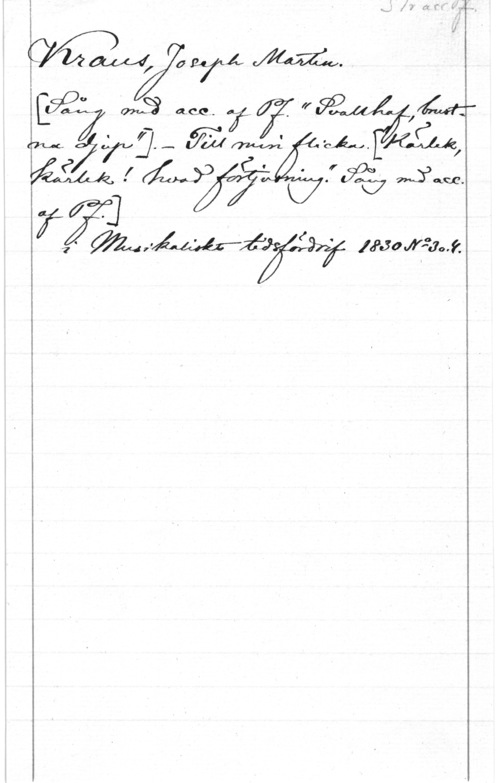 1 Sy acc Pf.
Kraus, Joseph Martin.
[Sång med acc. af Pf. "Svallhaf, brust-
na djup"]. – Till min flicka. ["Kärlek,
kärlek! hvad förtjusning." Sång med acc.
af Pf.]
i Musikaliskt tidsfördrif 1830 Nº 3 o. 4.